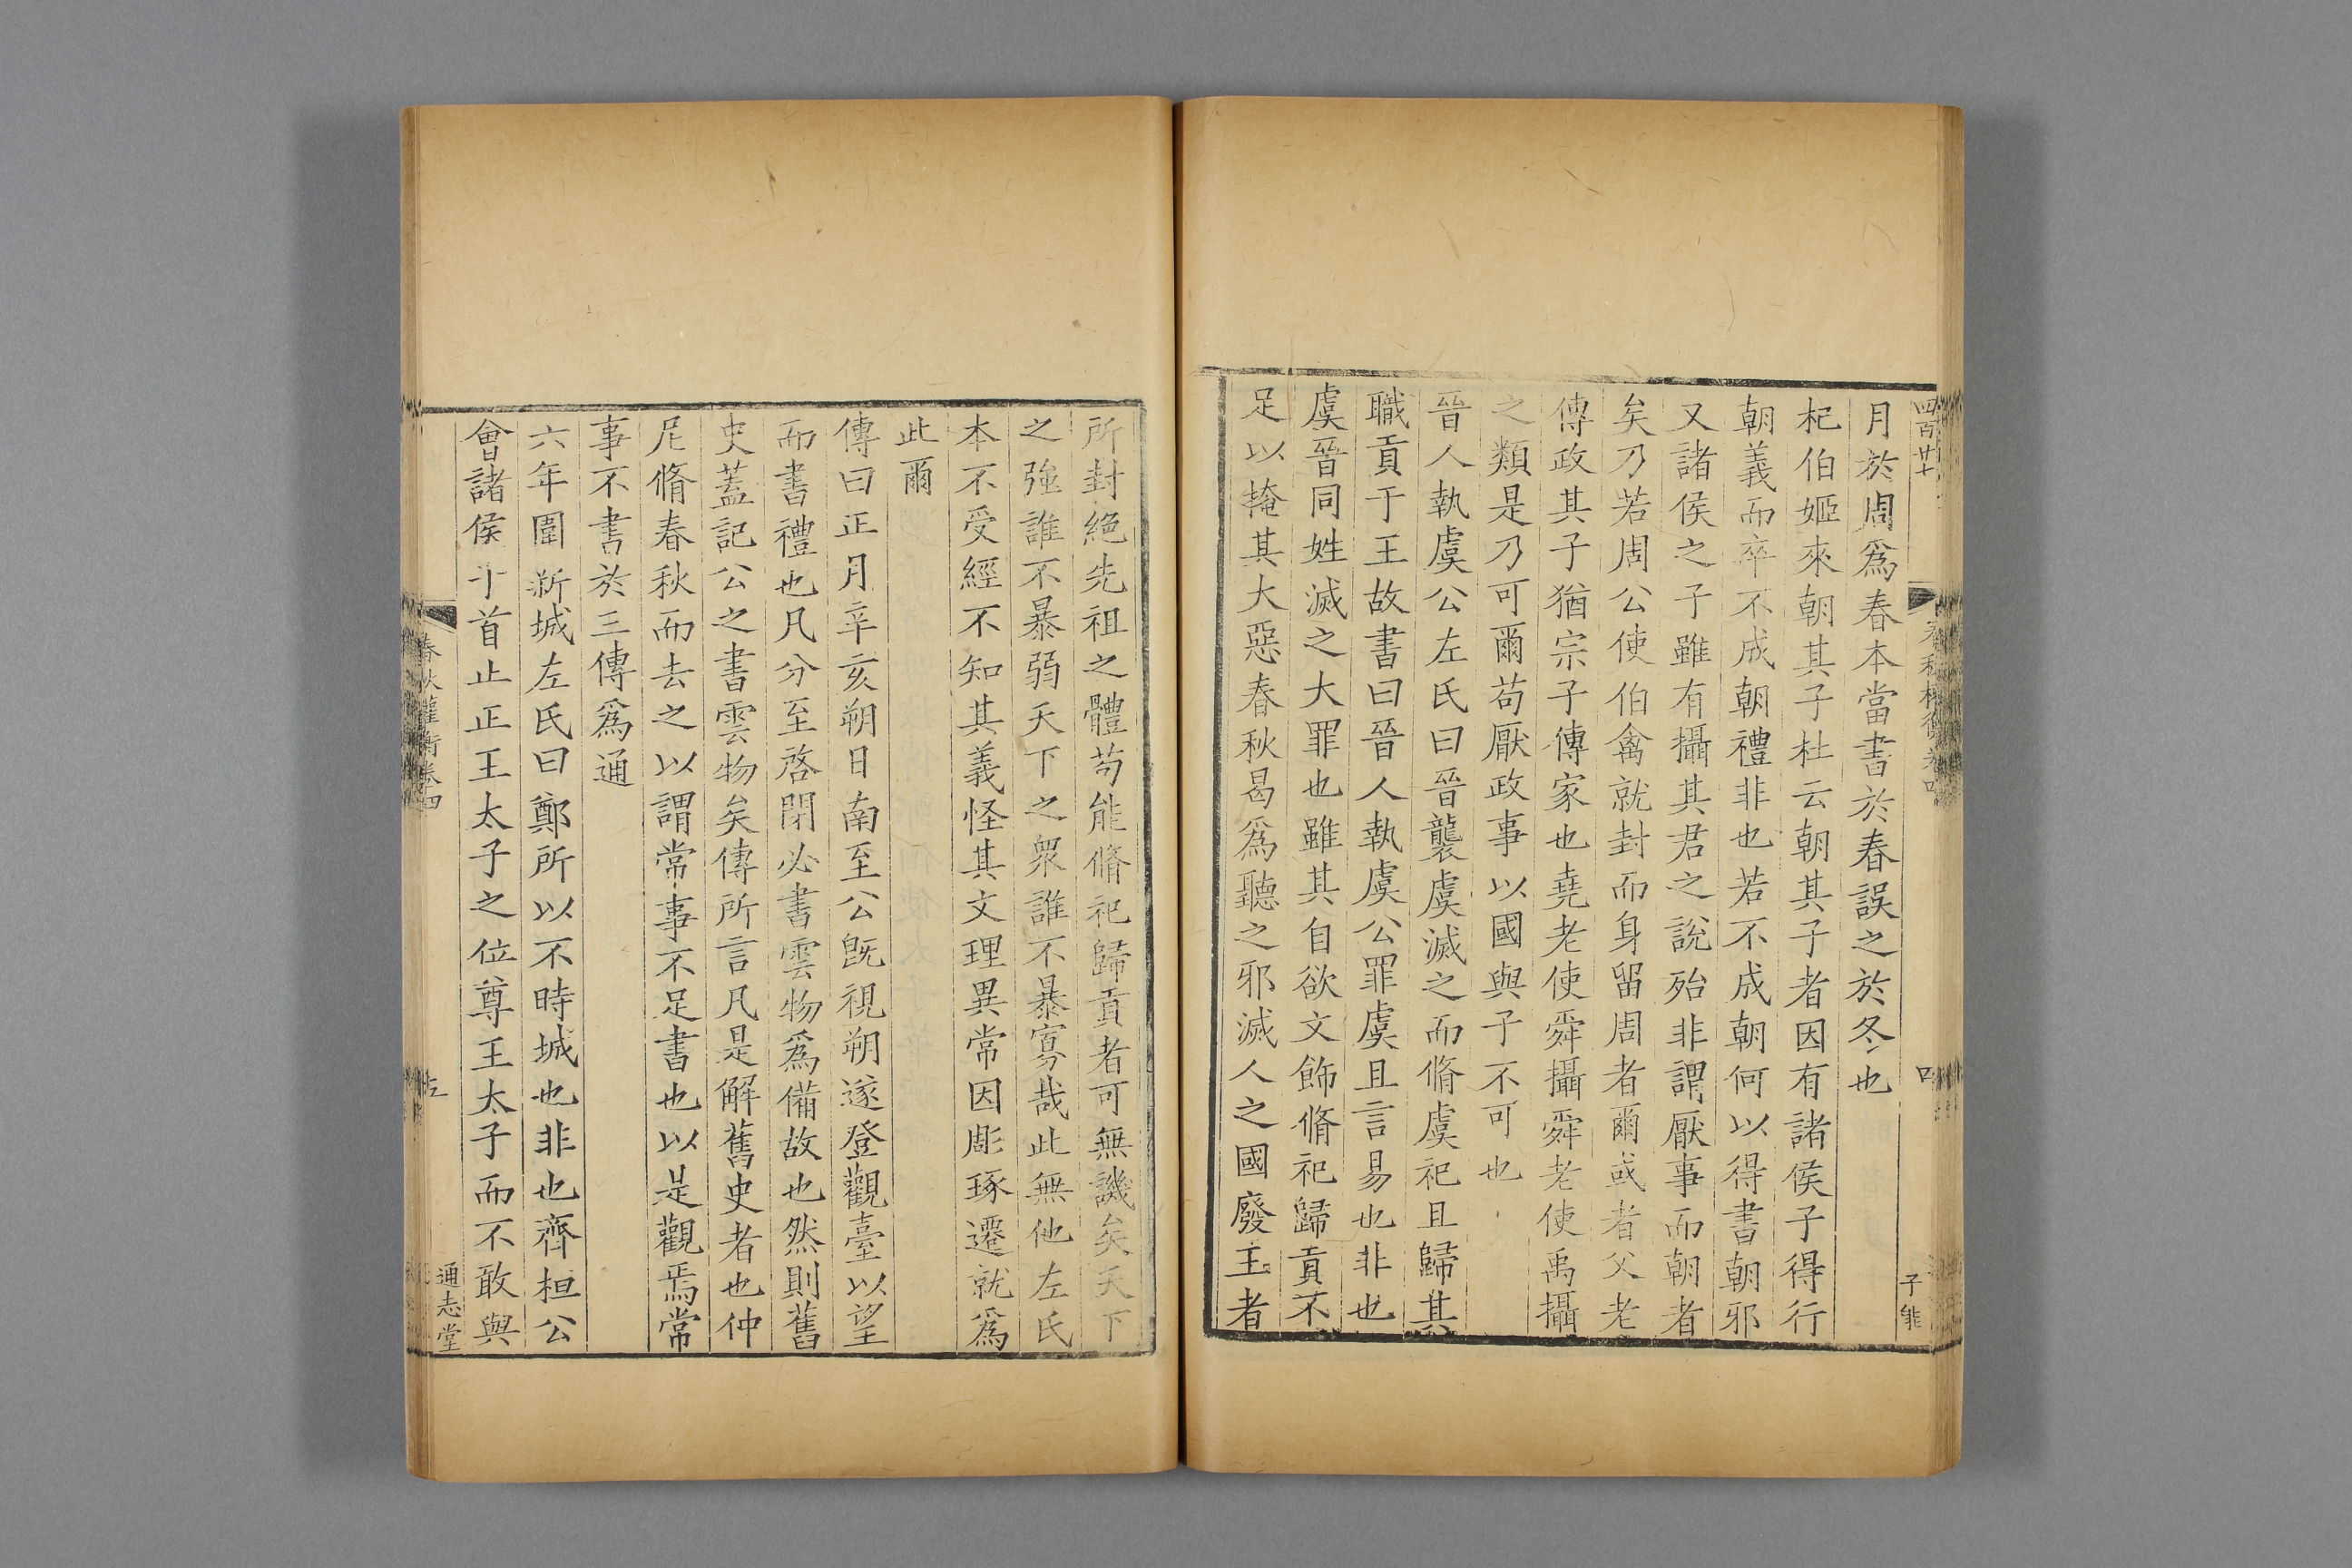 月於周爲春本當書於春誤之於冬也
杞伯姬來朝其子杜云朝其子者因有諸侯子得行
朝義而卒不成朝禮非也若不成朝何以得書朝邪
又諸侯之子雖有攝其君之說殆非謂厭事而朝者
矣乃若周公使伯禽就封而身留周者爾或者父老
傳政其子猶宗子傳家也堯老使舜攝舜老使禹攝
之類是乃可爾苟厭政事以國與子不可也
晉人執虞公左氏曰晉襲虞滅之而脩虞祀且歸其
職貢于王故書曰晉人執虞公罪虞且言易也非也
虞晉同姓滅之大罪也雖其自欲文飾脩祀歸貢不
足以掩其大惡春秋曷爲聽之邪滅人之國廢王者
四百廿七
子能
所封絕先祖之體苟能脩祀歸貢者可無譏矣天下
之強誰不暴弱天下之衆誰不暴寡哉此無他左氏
本不受經不知其義怪其文理異常因彫琢遷就爲
此爾
傳曰正月辛亥朔日南至公旣視朔遂登觀臺以望
而書禮也凡分至啓閉必書雲物爲備故也然則舊
史蓋記公之書雲物矣傳所言凡是解舊史者也仲
尼脩春秋而去之以謂常事不足書也以是觀焉常
事不書於三傳爲通
六年圍新城左氏曰鄭所以不時城也非也齊桓公
會諸侯于首止正王太子之位尊王太子而不敢與
春秋權衡卷四
通志堂